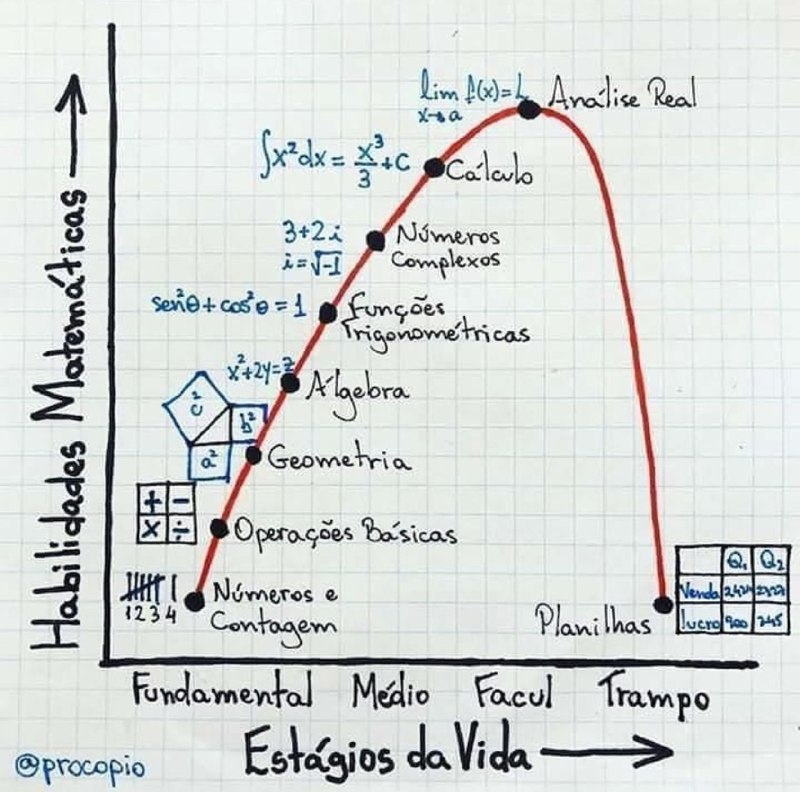 Habilidades Matemáticas
lim f(x)=L
x→a
Análise Real
∫x²dx = x³/3 + C
Cálculo
3+2i
i=√-1
Números
Complexos
sen²θ+cos²θ=1
Funções
Trigonométricas
x²+2y=z
Álgebra
c²
b²
a²
Geometria
+ −
× ÷
Operações Básicas
1 2 3 4
Números e
Contagem
Planilhas
Q₁ Q₂
Venda
lucro 900 245
Fundamental Médio Facul Trampo
Estágios da Vida
@procopio